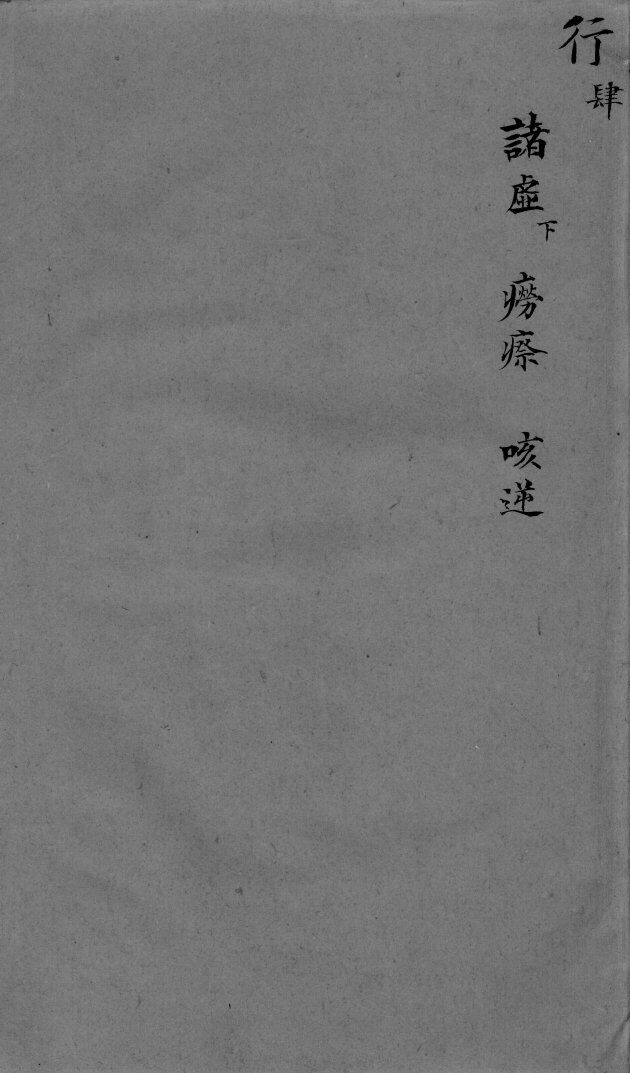 行肆
諸虛下 癆瘵 咳逆